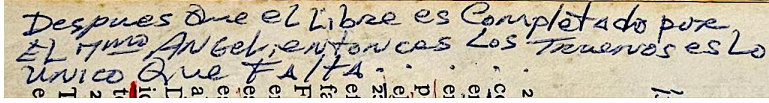 Despues Que el Libre es Completado por
EL 7mo ANGel, entonces Los Truenos es Lo
UNICO QUE FALTA . . . . .